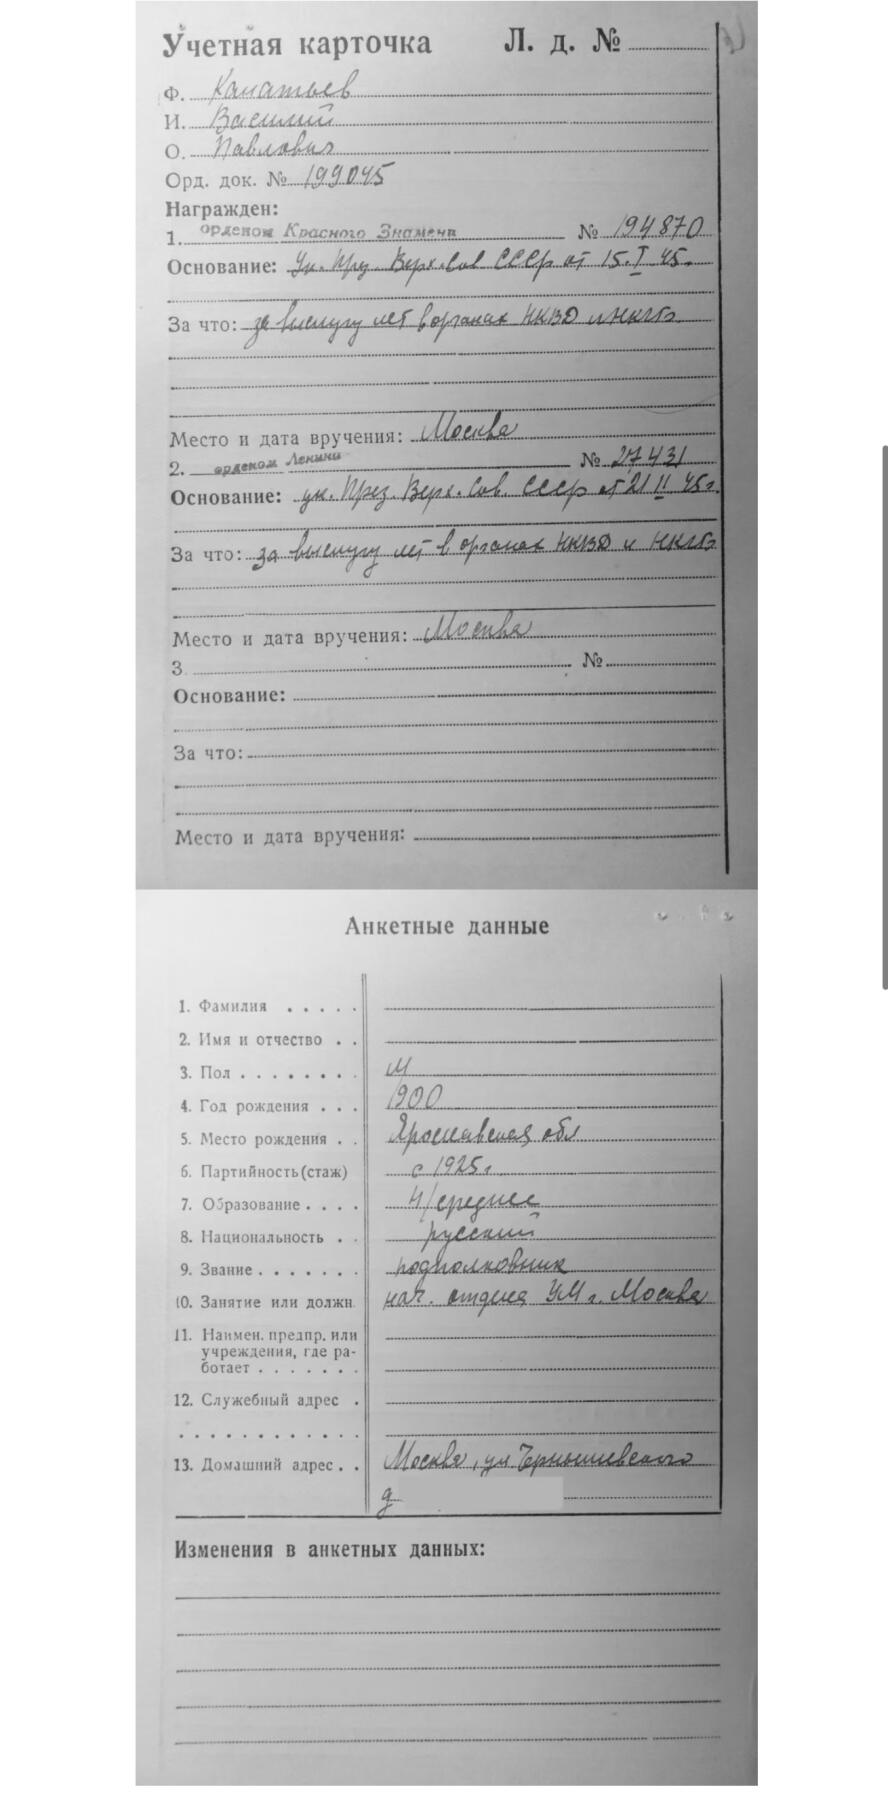 Учетная карточка Л. д. №
Ф. Канатьев
И. Василий
О. Павлович
Орд. док. № 199045
Награжден:
1. орденом Красного Знамени № 194870
Основание: Ук. През. Верх. Сов СССР от 15.I 45.
За что: за выслугу лет в органах НКВД и НКГБ.
Место и дата вручения: Москва
2. орденом Ленина № 27431
Основание: ук. През. Верх. Сов. СССР от 21 II 45 г.
За что: за выслугу лет в органах НКВД и НКГБ
Место и дата вручения: Москва
3. №
Основание:
За что:
Место и дата вручения:
Анкетные данные
1. Фамилия
2. Имя и отчество
3. Пол М
4. Год рождения 1900
5. Место рождения Ярославская обл
6. Партийность (стаж) с 1925 г.
7. Образование н/среднее
8. Национальность русский
9. Звание подполковник
10. Занятие или должн. нач. отдела УМ г. Москва
11. Наимен. предпр. или
учреждения, где ра-
ботает
12. Служебный адрес
13. Домашний адрес Москва, ул Чернышевского
д
Изменения в анкетных данных: